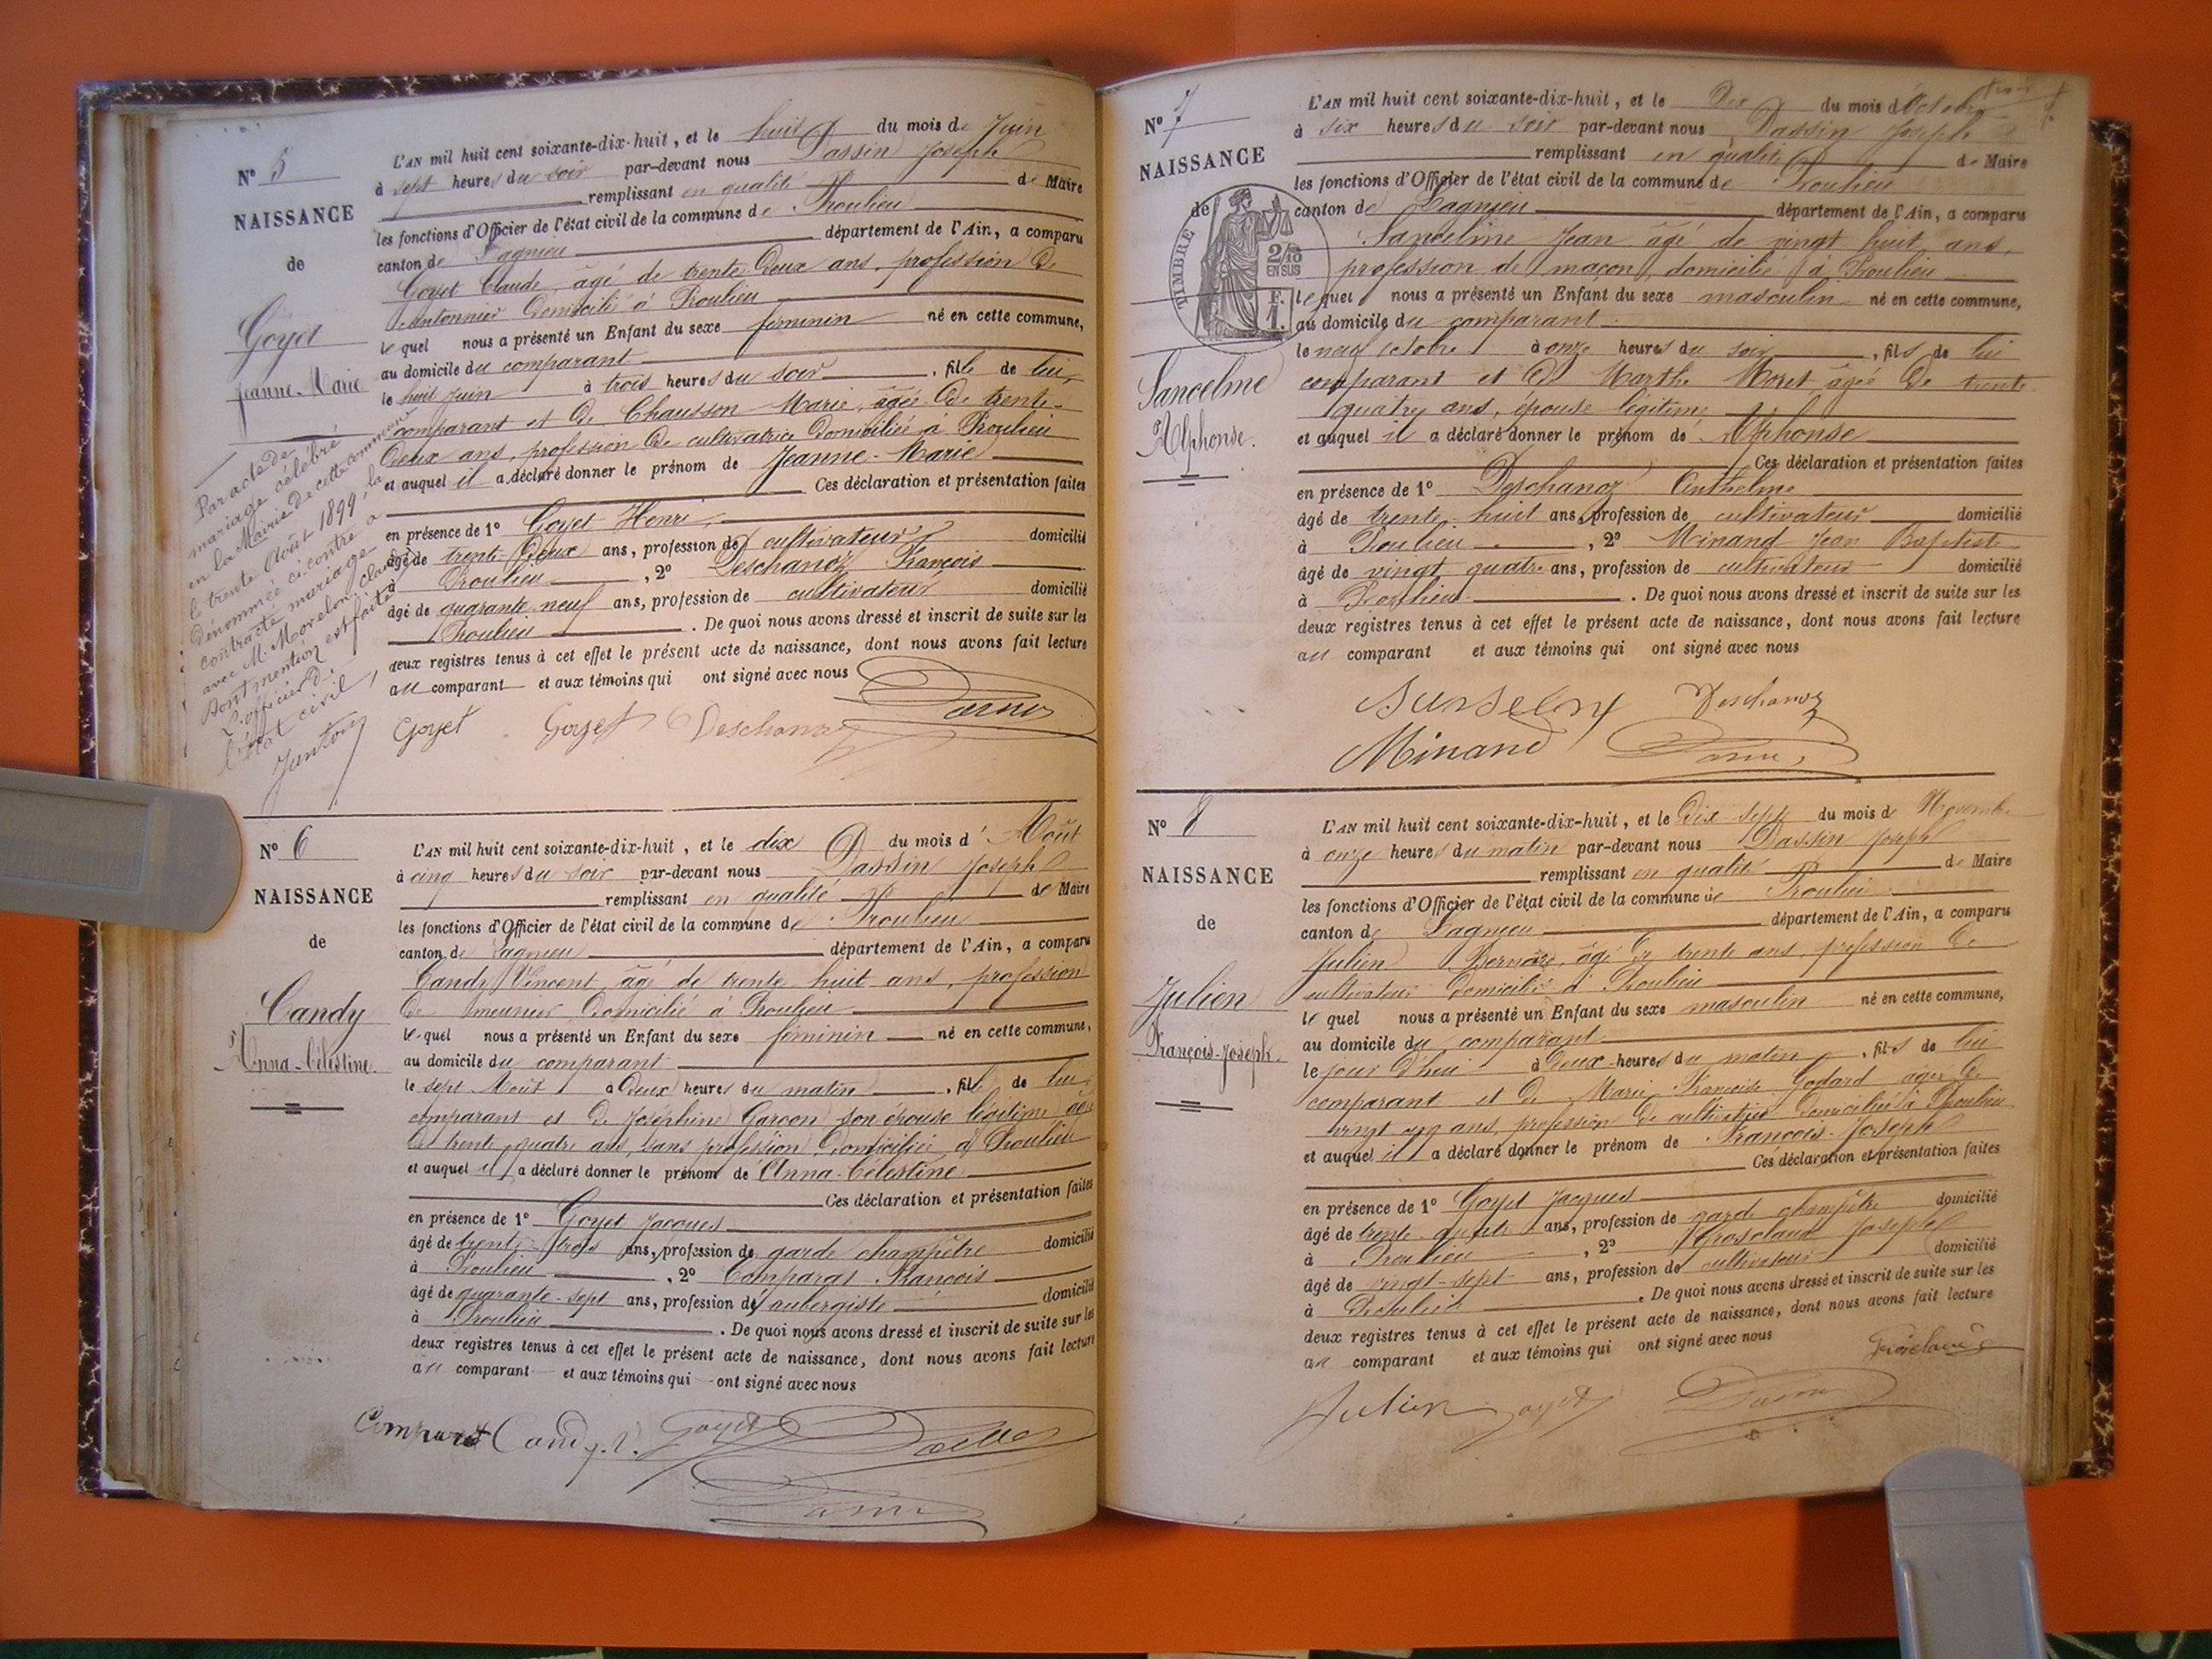 N° 5
NAISSANCE
de
Goyet
Jeanne-Marie
Par acte de
mariage célébré
en la Mairie de cette commune
le trente Août 1899 la
dénommée ci-contre a
contracté mariage
avec M. Morelon Claude
dont mention est faite
L'officier de
l'état civil,
L'AN mil huit cent soixante-dix-huit, et le huit du mois de Juin
à sept heures du soir par-devant nous Passin Joseph
remplissant en qualité de Maire
les fonctions d'Officier de l'état civil de la commune de Proulieu
canton de Lagnieu département de l'Ain, a comparu
Goyet Claude, âgé de trente deux ans, profession de
domicilié à Proulieu
lequel nous a présenté un Enfant du sexe féminin né en cette commune,
au domicile du comparant
le huit Juin à trois heures du soir, fille de lui
comparant et de Chausson Marie, âgée de trente-
deux ans, profession de cultivatrice domiciliée à Proulieu
et auquel il a déclaré donner le prénom de Jeanne-Marie
Ces déclaration et présentation faites
en présence de 1° Goyet Henri,
âgé de trente deux ans, profession de cultivateur domicilié
à Proulieu, 2° Deschanoz François
âgé de quarante-neuf ans, profession de cultivateur domicilié
Proulieu. De quoi nous avons dressé et inscrit de suite sur les
deux registres tenus à cet effet le présent acte de naissance, dont nous avons fait lecture
au comparant et aux témoins qui ont signé avec nous
Goyet Goyet Deschanoz
N° 6
NAISSANCE
de
Candy
Anna-Célestine.
L'AN mil huit cent soixante-dix-huit, et le dix du mois d'Août
à cinq heures du soir par-devant nous Passin Joseph
remplissant en qualité de Maire
les fonctions d'Officier de l'état civil de la commune de Proulieu
canton de Lagnieu département de l'Ain, a comparu
Candy Vincent, âgé de trente huit ans, profession
de meunier domicilié à Proulieu
lequel nous a présenté un Enfant du sexe féminin né en cette commune,
au domicile du comparant
le sept Août à deux heures du matin, fille de lui
comparant et de Joséphine Garçon son épouse légitime âgée
de trente quatre ans, sans profession domiciliée à Proulieu
et auquel il a déclaré donner le prénom de Anna-Célestine
Ces déclaration et présentation faites
en présence de 1° Goyet Jacques
âgé de trente trois ans, profession de garde champêtre domicilié
à Proulieu, 2° Comparat François
âgé de quarante-sept ans, profession de aubergiste domicilié
à Proulieu. De quoi nous avons dressé et inscrit de suite sur les
deux registres tenus à cet effet le présent acte de naissance, dont nous avons fait lecture
au comparant et aux témoins qui ont signé avec nous
Comparat Candy. V. Goyet
N° 7
NAISSANCE
de
TIMBRE
2/10
EN SUS
F.
1.
Sancelme
Alphonse.
L'AN mil huit cent soixante-dix-huit, et le Dix du mois d'Octobre
à six heures du soir par-devant nous Passin Joseph
remplissant en qualité de Maire
les fonctions d'Officier de l'état civil de la commune de Proulieu
canton de Lagnieu département de l'Ain, a comparu
Sancelme Jean âgé de vingt huit ans,
profession de maçon, domicilié à Proulieu
lequel nous a présenté un Enfant du sexe masculin né en cette commune,
au domicile du comparant
le neuf octobre à onze heures du soir, fils de lui
comparant et de Marthe Moret âgée de trente
quatre ans, épouse légitime
et auquel il a déclaré donner le prénom de Alphonse
Ces déclaration et présentation faites
en présence de 1° Deschanoz Anthelme
âgé de trente-huit ans, profession de cultivateur domicilié
à Proulieu, 2° Minand Jean Baptiste
âgé de vingt quatre ans, profession de cultivateur domicilié
à Proulieu. De quoi nous avons dressé et inscrit de suite sur les
deux registres tenus à cet effet le présent acte de naissance, dont nous avons fait lecture
au comparant et aux témoins qui ont signé avec nous
Deschanoz
Minand
N° 8
NAISSANCE
de
Julien
François-Joseph.
L'AN mil huit cent soixante-dix-huit, et le Dix-sept du mois de Novembre
à onze heures du matin par-devant nous Passin Joseph
remplissant en qualité de Maire
les fonctions d'Officier de l'état civil de la commune de Proulieu
canton de Lagnieu département de l'Ain, a comparu
Julien Bernard, âgé de trente ans, profession de
cultivateur domicilié à Proulieu
lequel nous a présenté un Enfant du sexe masculin né en cette commune,
au domicile du comparant
le jour d'hui à deux heures du matin, fils de lui
comparant et de Marie Françoise Godard âgée de
vingt cinq ans, profession de cultivatrice domiciliée à Proulieu
et auquel il a déclaré donner le prénom de François-Joseph
Ces déclaration et présentation faites
en présence de 1° Goyet Jacques
âgé de trente-quatre ans, profession de garde champêtre domicilié
à Proulieu, 2° Grosclaude Joseph
âgé de vingt-sept ans, profession de cultivateur domicilié
à Proulieu. De quoi nous avons dressé et inscrit de suite sur les
deux registres tenus à cet effet le présent acte de naissance, dont nous avons fait lecture
au comparant et aux témoins qui ont signé avec nous
Julien Goyet